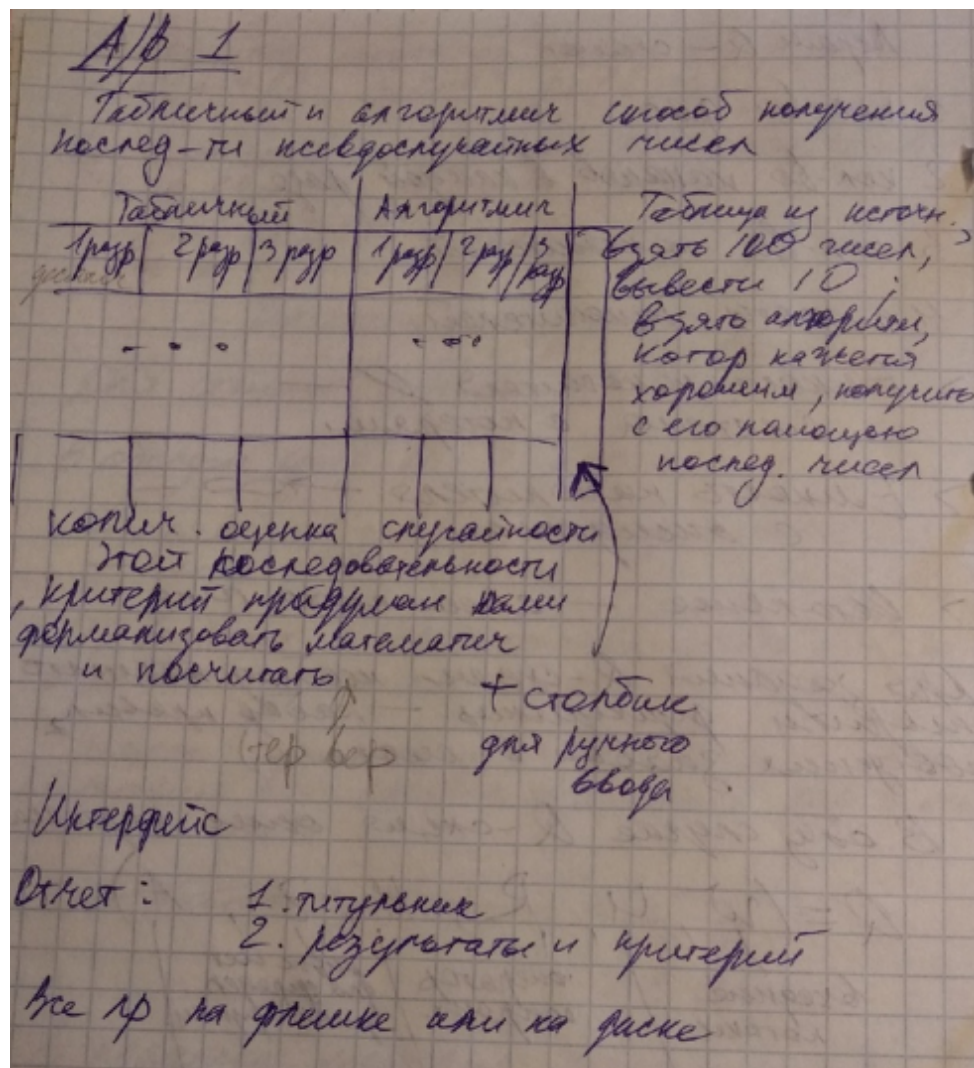 Л/р 1
Табличный и алгоритмич способ получения
послед-ти псевдослучайных чисел
Табличный Алгоритмич
1 разр 2 разр 3 разр 1 разр 2 разр 3 разр
Таблица из источн.,
взять 100 чисел,
вывести 10;
взять алгоритм,
котор кажется
хорошим, получить
с его помощью
послед. чисел
колич. оценка случайности
этой последовательности
, критерий придуман нами
формализовать математич
и посчитать
тер вер
+ столбик
для ручного
ввода
Интерфейс
Отчет: 1. титульник
2. результаты и критерий
Все лр на флешке или на диске